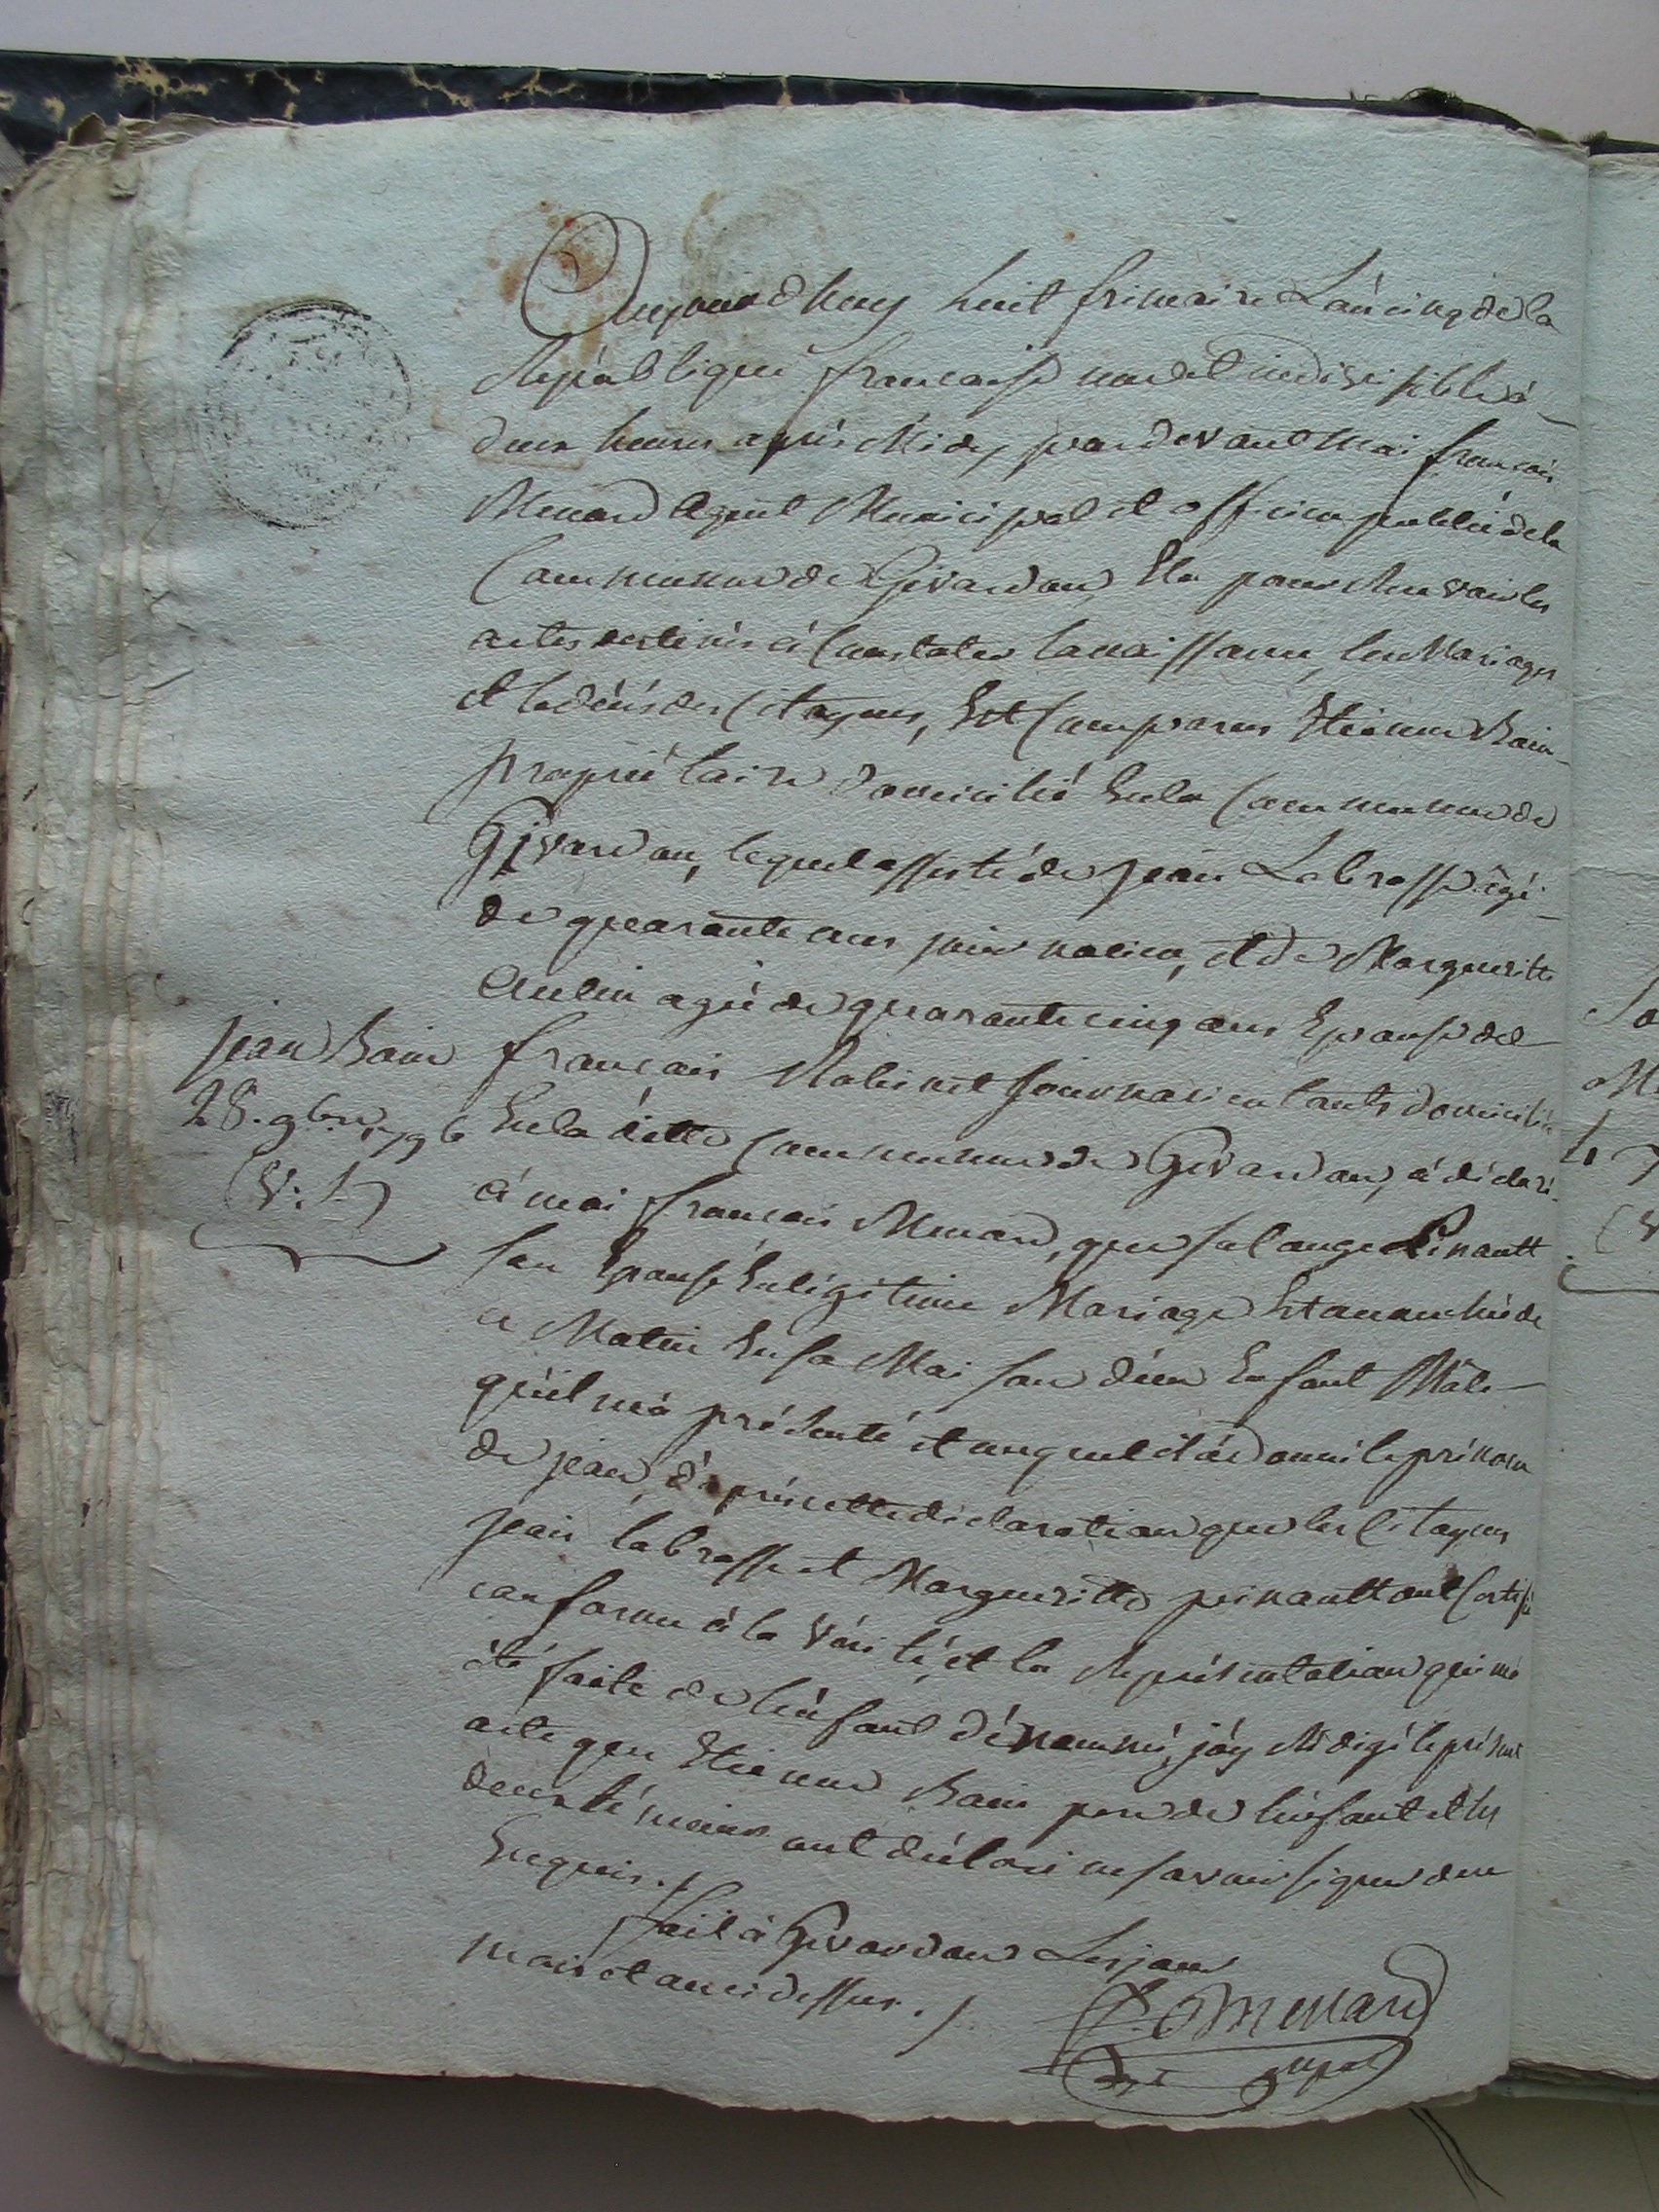 Aujourdhuy huit frimaire L'an cinq de la
République francaise une et indivisible à
deux heures après Midy, pardevant Moi francois
Menard Agent Municipal et officier public de la
Commune de Givardon, Elu pour Recevoir les
actes destinés à Constater la naissance, les Mariages
et le décès des Citoyens, Est Comparus Etienne Bain
propriétaire domicilié En la Commune de
Givardon, lequel assisté de jean Labrosse agé
de quarante ans journalier, et de Margueritte
agée de quarante cinq ans Epouse de
jean Bain
francois Robinet Journalier tants domiciliés
28. 9bre 1796
En la ditte Commune de Givardon, a déclaré
(v. s.)
à moi francois Menard, que Solange Pinault
son Epouse En légitime Mariage Est accouchée de
ce Matin En sa Maison d'un Enfant Mâle
qu'il m'a présenté et auquel il a donné le prénom
de jean, d'après cette déclaration que les Citoyens
jean labrosse et Margueritte pinault ont Certifié
conforme à la vérité, et la Représentation qui m'a
été faite de l'énfant dénommé, j'ay Rédigé le présent
acte que Etienne Bain pere de l'énfant et les
deux témoins ont déclaré ne savoir signer de ce
Enquis./.
fait à Givardon Les jour
mois et an ci dessus./.
F. Menard
agt mpal